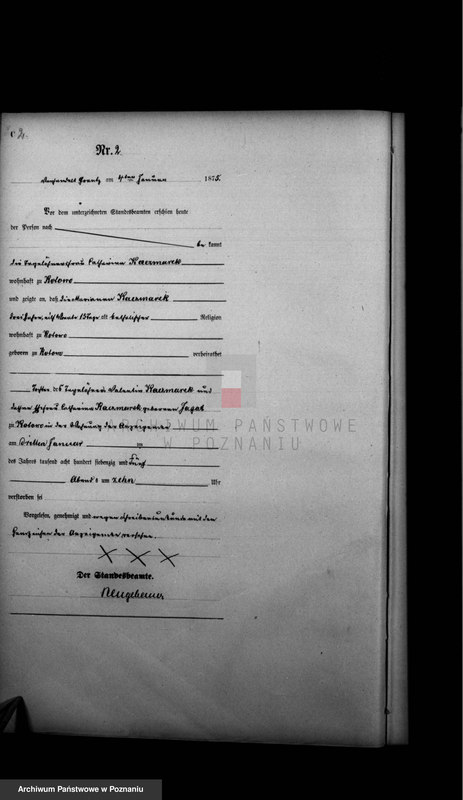 C 2.
Nr. 2
am 4ten Januar 1875.
Vor dem unterzeichneten Standesbeamten erschien heute
der Person nach
be kannt
die Tagelöhnerfrau Catharina Kaczmarek
wohnhaft zu Kotowo
und zeigte an, daß die Marianna Kaczmarek
drei Jahre, alt katholischer Religion
wohnhaft zu Kotowo
geboren zu Kotowo verheirathet
Tochter des Tagelöhners Valentin Kaczmarek und
dessen Ehefrau Catharina Kaczmarek geborenen
zu Kotowo in der Wohnung der Anzeigende
am dritten Januar
des Jahres tausend acht hundert siebenzig und fünf
Abends um zehn Uhr
verstorben sei
Vorgelesen, genehmigt und wegen Schreibensunkunde mit den
Handzeichen der Anzeigende versehen.
X X X
Der Standesbeamte.
ARCHIWUM PAŃSTWOWE
W POZNANIU
Archiwum Państwowe w Poznaniu